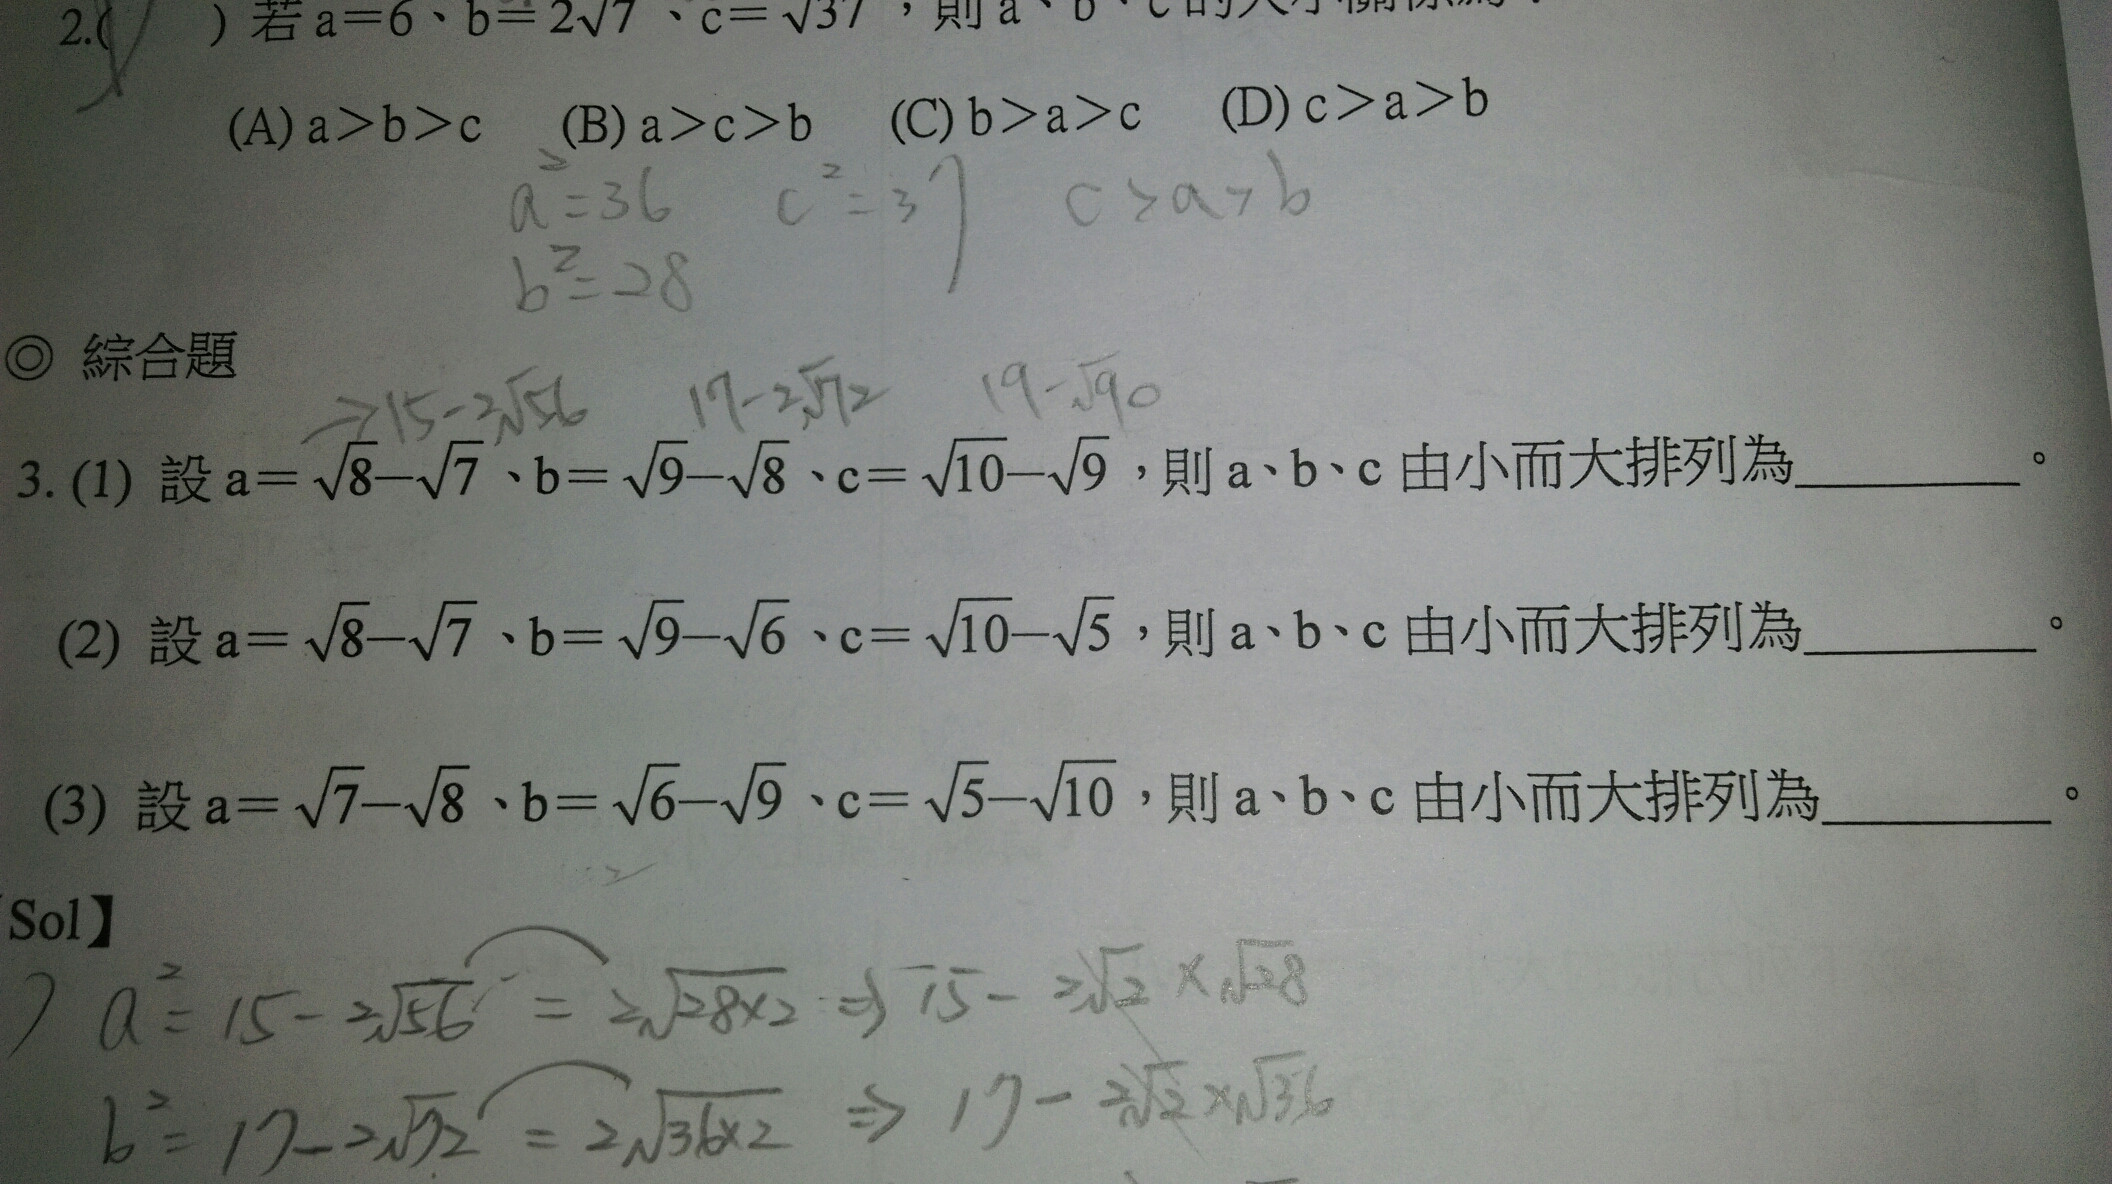 2.( ) 若 a＝6、b＝2√7、c＝√37，則 a、b、c 的大小關係為？
(A) a＞b＞c (B) a＞c＞b (C) b＞a＞c (D) c＞a＞b
a²=36 c²=37 c>a>b
b²=28
◎ 綜合題
⇒15-2√56 17-2√72 19-√90
3. (1) 設 a＝√8－√7、b＝√9－√8、c＝√10－√9，則 a、b、c 由小而大排列為________。
(2) 設 a＝√8－√7、b＝√9－√6、c＝√10－√5，則 a、b、c 由小而大排列為________。
(3) 設 a＝√7－√8、b＝√6－√9、c＝√5－√10，則 a、b、c 由小而大排列為________。
Sol】
) a²=15-2√56 = 2√28×2 ⇒ 15-2√2×√28
b²=17-2√72 = 2√36×2 ⇒ 17-2√2×√36